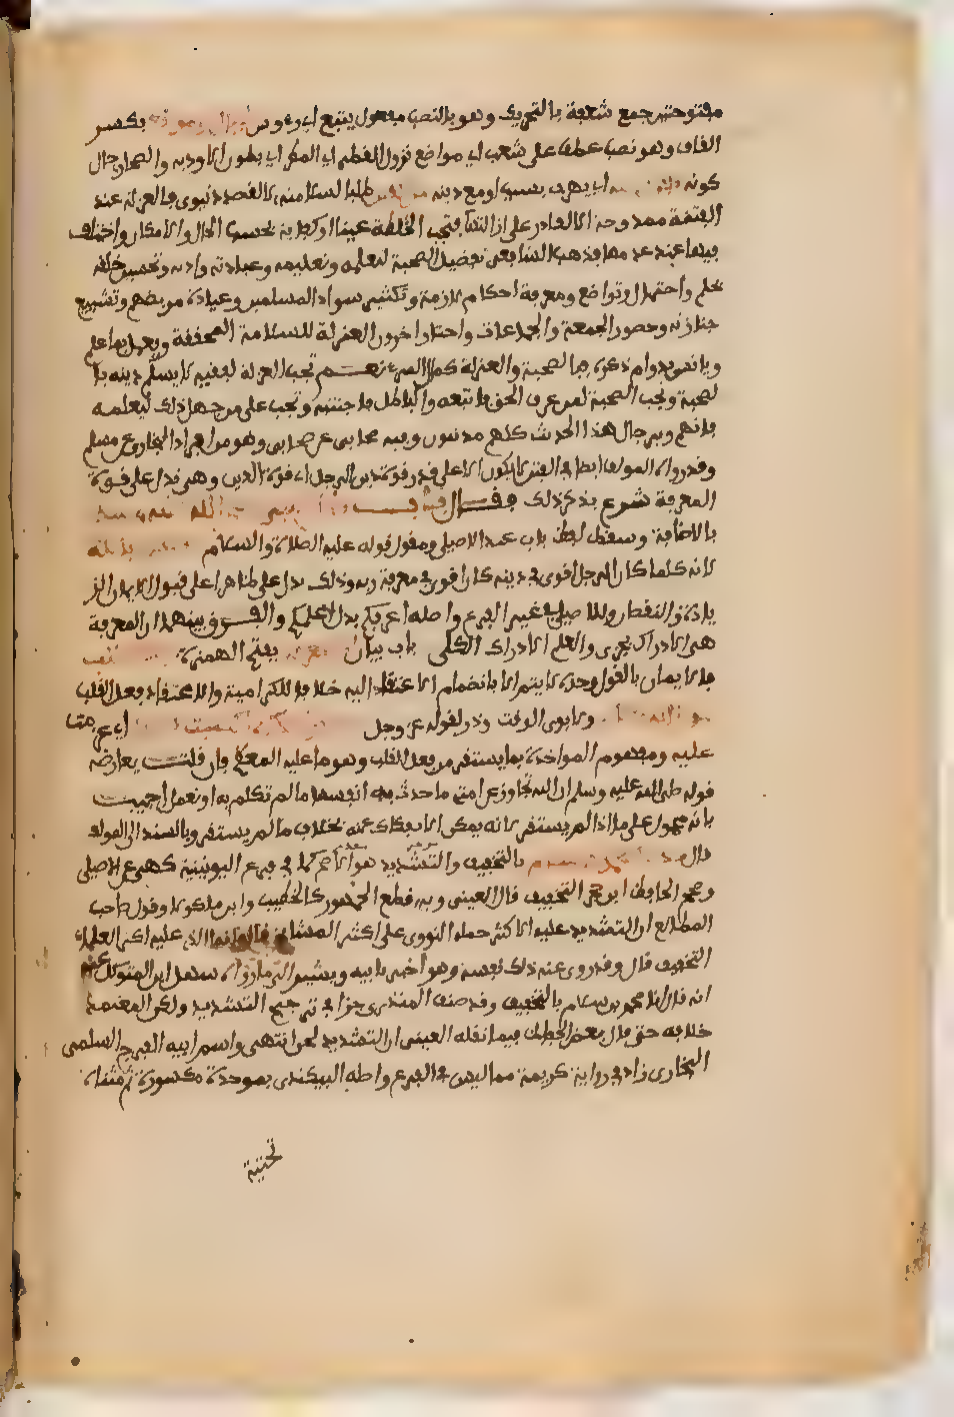 مفتوحتين جمع شعبة بالتحريك وهو بالنصب مفعول يتبع اي رءوس الجبال ومواقع بكسر
القاف وهو نصب عطف على شعب اي مواضع نزول القطر اي المطر اي بطون الاودية والصحاري حال
كونه يفر بدينه اي يهرب بسببه او مع دينه من الفتن طلبا لسلامته لا لقصد دنيوي فالعزلة عند
الفتنة ممدوحة الا لقادر على ازالتها فتجب الخلطة عينا او كفاية بحسب الحال والامكان واختلف
فيها عند عدمها فمذهب الشافعي تفضيل الصحبة لتعلمه وتعليمه وعبادته وادبه وتحسين خلقه
بحلم واحتمال وتواضع ومعرفة احكام لازمة وتكثير سواد المسلمين وعيادة مريضهم وتشييع
جنازته وحضور الجمعة والجماعات واختار اخرون العزلة للسلامة المحققة وليعمل بما علم
ويانس بدوام ذكره فبالصحبة والعزلة كمال المرء نعم تجب العزلة لفقيه لا يسلم دينه بالـ
لصحبة وتجب الصحبة لمن عرف الحق فاتبعه والباطل فاجتنبه وتجب على من جهل ذلك ليعلمه
فافهم ورجال هذا الحديث كلهم مدنيون وفيه صحابي عن صحابي وهو من افراد البخاري عن مسلم
وقد رواه المولف ايضا في الفتن لا يكون الا على قدر قوة دين الرجل اي قوة الدين وهي تدل على قوة
المعرفة شرع يذكر ذلك فقال باب قول النبي صلى الله عليه وسلم
بالاضافة وسقط لفظ باب عند الاصيلي ومقول قوله عليه الصلاة والسلام بالله
لانه كلما كان الرجل اقوى في دينه كان اقوى في معرفة ربه وذلك يدل ظاهرا على قبول الايمان الز
يادة والنقصان وللاصيلي في غير الفرع واصله اعرفكم بدل اعلمكم والفرق بينهما ان المعرفة
هي الادراك الجزءي والعلم الادراك الكلي باب بيان ان المعرفة بفتح الهمزة فعل القلب
فالايمان بالقول وحده لا يتم الا بانضمام الاعتقاد اليه خلافا للكرامية والاعتقاد فعل القلب
ولابوي الوقت وذر لقوله عز وجل كسبت اي عزمت
عليه ومفهوم المواخذة بما يستقر من فعل القلب وهو ما عليه المعظم فان قلت يعارضه
قوله صلى الله عليه وسلم ان الله تجاوز عن امتي ما حدثت به انفسها ما لم تكلم به او تعمل اجيب
بانه محمول على ما اذا لم يستقر لانه يمكن الانفكاك عنه بخلاف ما لم يستقر وبالسند الى المولف
قال بالتخفيف والتشديد هو الاصح كما في فرع اليونينية كهي عن الاصيلي
وصحح الحافظ ابن حجر التخفيف قال العيني وبه قطع الجمهور كالخطيب وابن ماكولا وقول صاحب
المطالع ان التشديد عليه الاكثر حمله النووي على اكثر المشايخ الذي عليه اكثر العلماء
التخفيف قال وقد روى عنه ذلك نفسه وهو اخبر بابيه ويشير الى ما رواه سهل ابن المتوكل عنه
انه قال انا محمد بن سلام بالتخفيف وقد صنف المنذري جزءا في ترجيح التشديد ولكن المعتمد
خلافه حتى قال بعض الحفاظ فيما نقله العيني ان التشديد لحن انتهى واسم ابيه الفرج السلمي
البخاري زاد في رواية كريمة مما ليس في الفرع واصله البيكندي بموحدة مكسورة ثم مثناة
تحتية